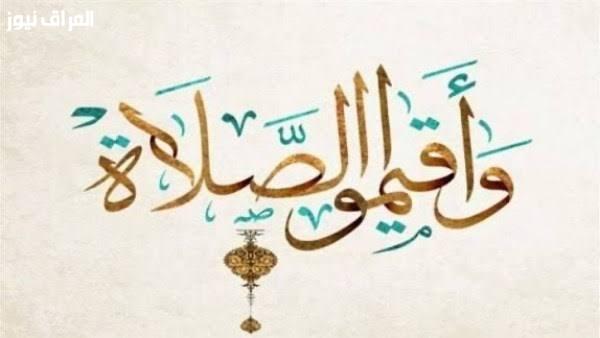 العراق نيوز
وَأَقِيمُوا الصَّلَاةَ